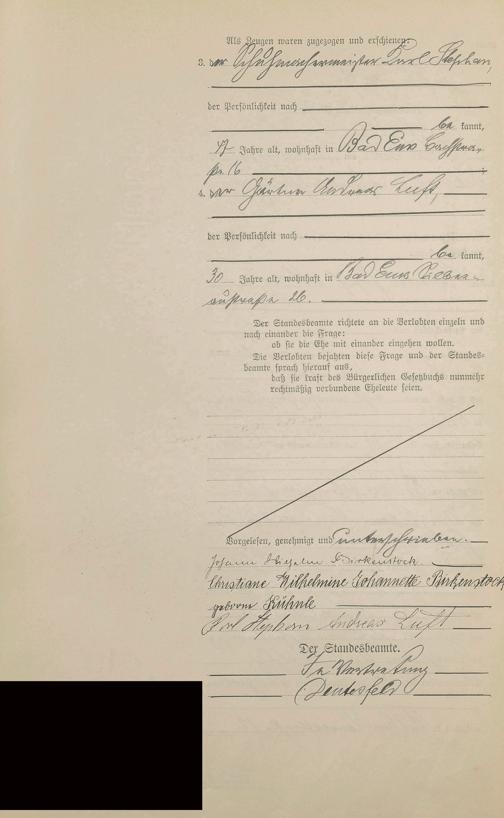 Als Zeugen waren zugezogen und erschienen:
3. der Schuhmachermeister Karl Stephan,
der Persönlichkeit nach
be kannt,
47 Jahre alt, wohnhaft in Bad Ems
16
4. der Gärtner Andreas Luft,
der Persönlichkeit nach
be kannt,
30 Jahre alt, wohnhaft in Bad Ems
austraße 26.
Der Standesbeamte richtete an die Verlobten einzeln und
nach einander die Frage:
ob sie die Ehe mit einander eingehen wollen.
Die Verlobten bejahten diese Frage und der Standes-
beamte sprach hierauf aus,
daß sie kraft des Bürgerlichen Gesetzbuchs nunmehr
rechtmäßig verbundene Eheleute seien.
Vorgelesen, genehmigt und unterschrieben.
Johann Wilhelm Birkenstock
Christiane Wilhelmine Johannette Birkenstock
geborene Kühnle
Karl Stephan Andreas Luft
Der Standesbeamte.
In Vertretung